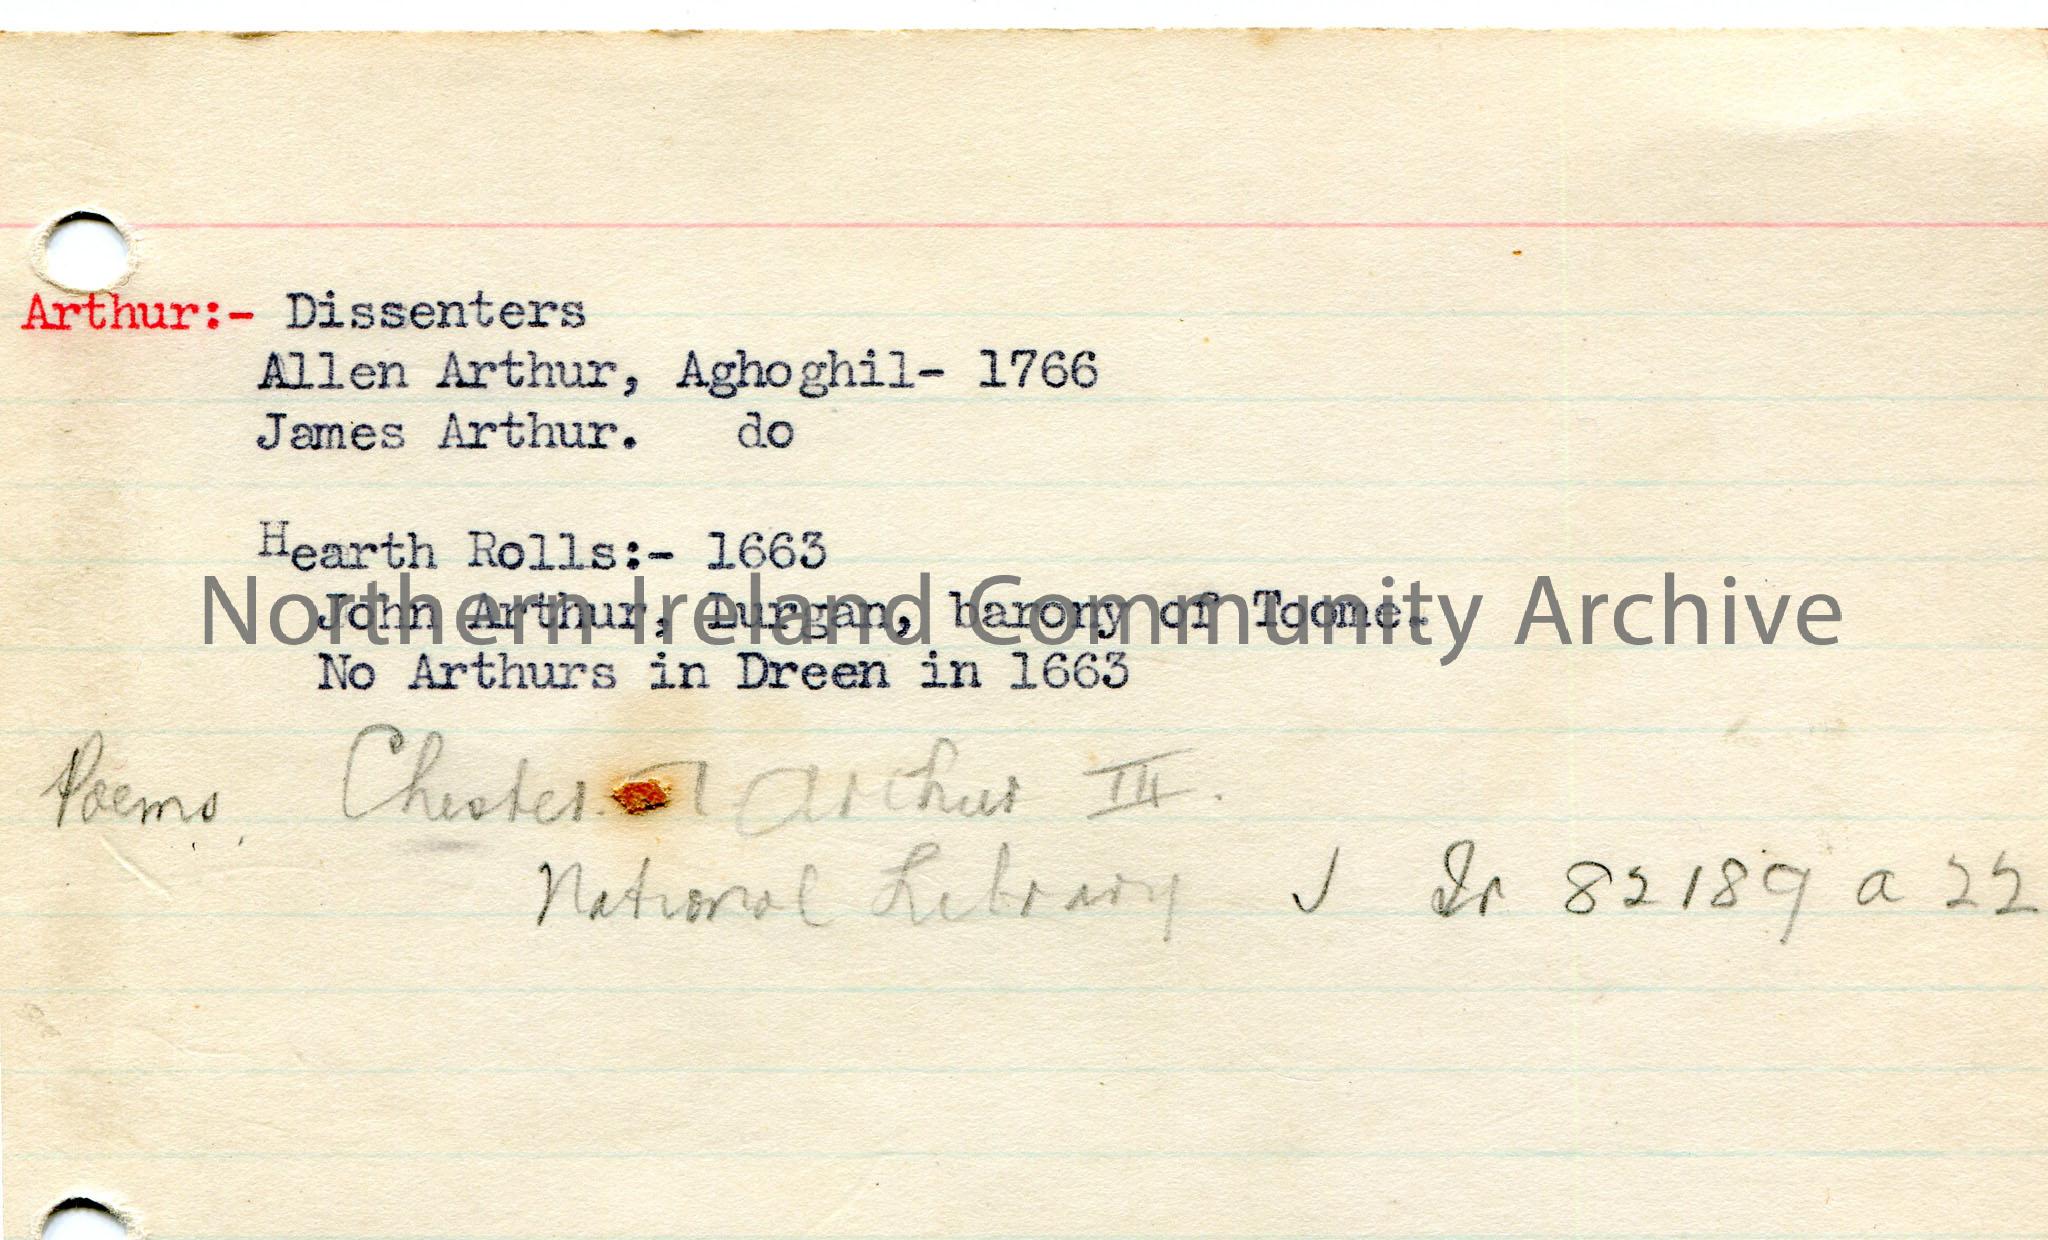 Arthur:- Dissenters
Allen Arthur, Aghoghil- 1766
James Arthur. do
Hearth Rolls:- 1663
John Arthur, Durgan, barony of Toome.
Northern Ireland Community Archive
No Arthurs in Dreen in 1663
Poems. Chester Arthur III.
National Library √ Ir 82189 a 22